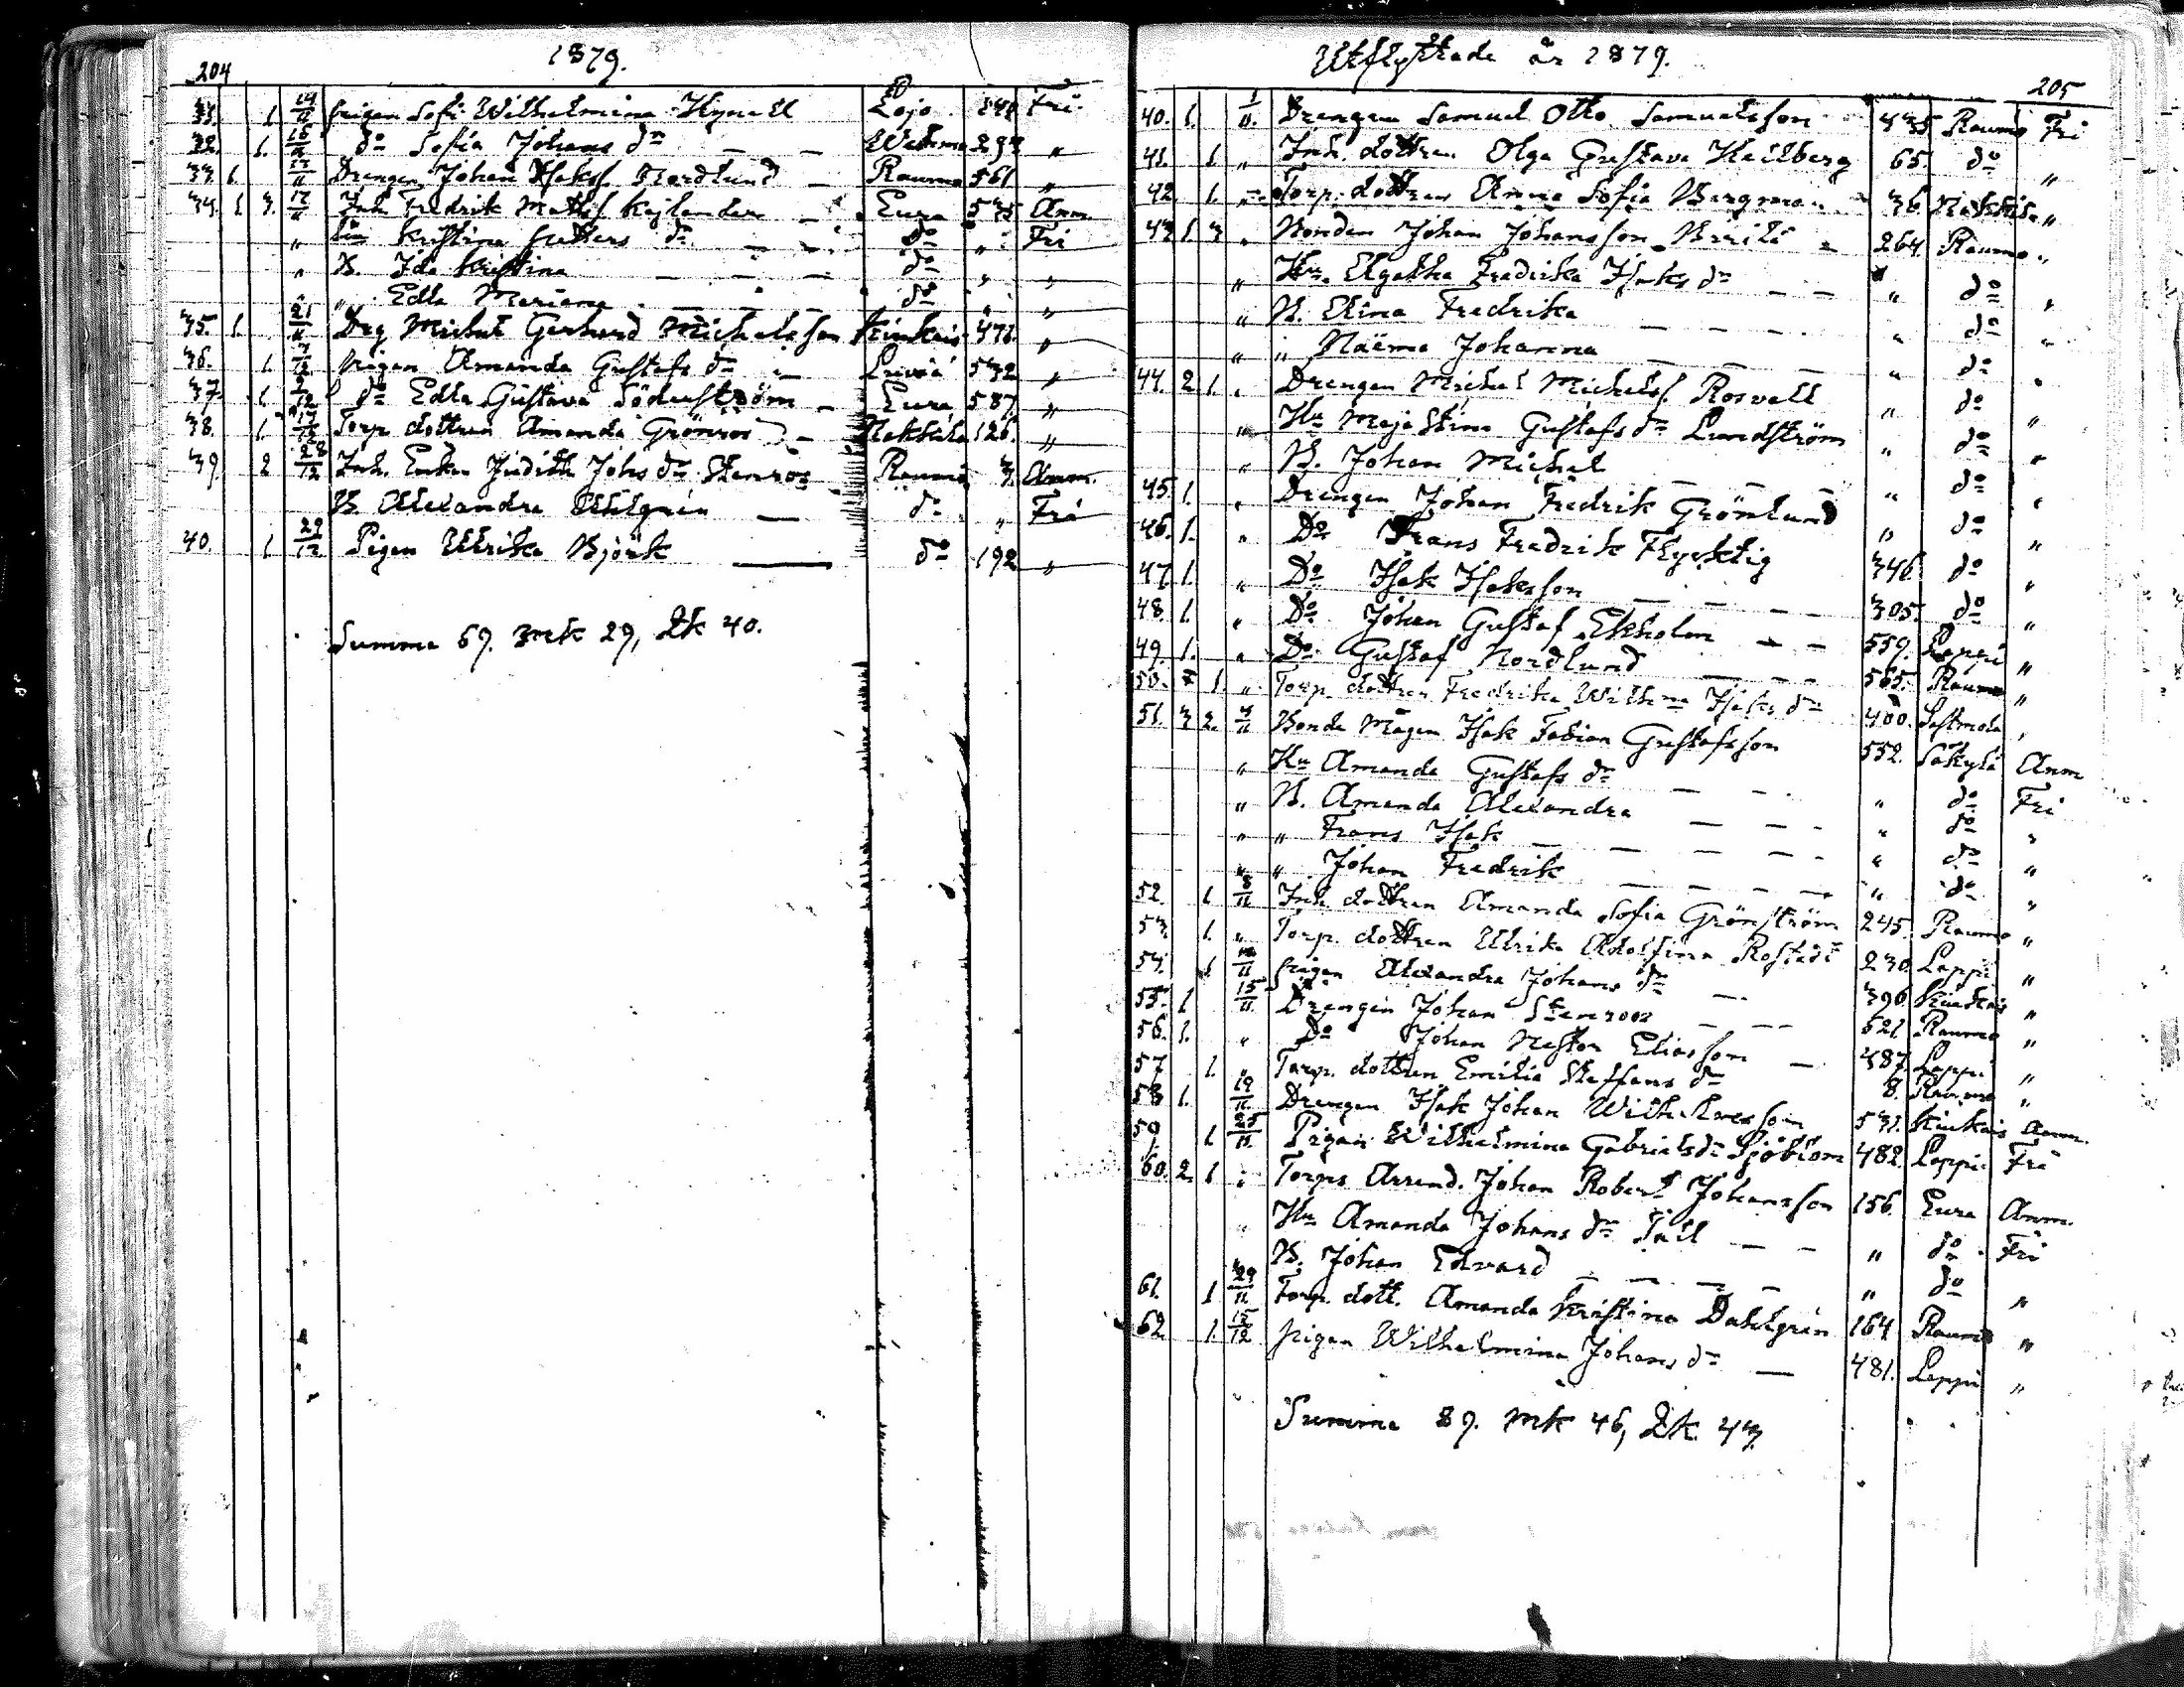 204
1879.
31. 1. 14/10 pigan Sofi Wilhelmina Kynell Lojo 348 Fri
32. 1. 16/11 do Sofia Johans dr Wehmo 293 "
33. 1. 17/11 Drengen Johan Isakss. Nordlund Raumo 561 "
34. 1 3. 17/11 Inh. Fredrik Matss. Kajlander Eura 535 Anm
" Kristina dr do " Fri
" B. Ida Kristina do " "
" " Edla Mariana do " "
35. 1. 21/11 Drg Michel Gerhard Michelsson Kiukais 471. "
36. 1. 7/12 pigan Amanda Gustafs dr 532 "
37. 1. 9/12 do Edla Gustava Söderström Eura 587 "
38. 1. 17/12 Torp. dottren Amanda Grönroos Nakkila 126. "
39. 2 28/12 Inh. Enkan Judith Johs dr Stenroos Raumo 3. Anm.
B Alexandra Ahlgrén do " Fri
40. 1 29/12 Pigan Ulrika Björk do 192 "
Summa 69. Mk 29, Qk 40.
Utflyttade år 1879.
205
40. 1. 1/11. Drengen Samuel Otto Samuelsson 335 Raumo Fri
41. 1 " Inh. dottren Olga Gustava Heilberg 65. do "
42. 1. " Torp. dottren Anna Sofia Bergman 36. Nakkila "
43 1 3 " Bonden Johan Johansson 264. Raumo "
" Hu. Agatha Fredrika Isaks dr " do "
" B. Elina Fredrika " do "
" " Naëma Johanna " do "
44. 2 1. " Drengen Michel Michelss. Rosvall " do "
" Hu Maja Stina Gustafs dr Lundström " do "
" B. Johan Michel " do "
45. 1. " Drengen Johan Fredrik Grönlund " do "
46. 1. " Do Frans Fredrik Flycktig 346 do "
47 1. " Do Isak Isaksson 305. do "
48. 1. " Do Johan Gustaf Ekholm 559. Lappi "
49. 1. " Do Gustaf Nordlund 565. Raumo "
50. 1. " Torp. dottren Fredrika Wilhma Isaks dr 400. Sastmola "
51. 3 2. 4/11 Bonde Mågen Isak Fabian Gustafsson 552. Säkylä Anm
" Hu Amanda Gustafs dr " do Fri
" B. Amanda Alexandra " do "
" " Frans Isak " do "
" " Johan Fredrik " do "
52. 1. 8/11 Inh. dottren Amanda Sofia Grönström 245. Raumo "
53. 1. " Torp. dottren Ulrika Adolfina Rostedt 230. Lappi "
54. 1 /11 pigan Alexandra Johans dr 396 Kiukais "
55. 1 15/11. Drengen Johan Stenroos 521 Raumo "
56. 1. " Do Johan Nestor Eliasson 387. Lappi "
57 1. " Torp. dottren Emilia Staffans dr 8. Raumo "
58 1. 19/11. Drengen Isak Johan Wilh. Ivarsson 531. Kiukais Anm.
59 1 25/11. Pigan Wilhelmina Gabrielsdr Sjöblom 482. Lappi Fri
60. 2 1 " Torps Arrend. Johan Robert Johansson 156. Eura Anm.
" Hu Amanda Johans dr Tail " do Fri
B. Johan Edvard " do "
61. 1 29/11 Torp. dott. Amanda Kristina Dahlgrén 164 Raumo "
62 1. 15/12 pigan Wilhelmina Johans dr 481. Lappi "
Summa 89. Mk 46, Qk. 43.